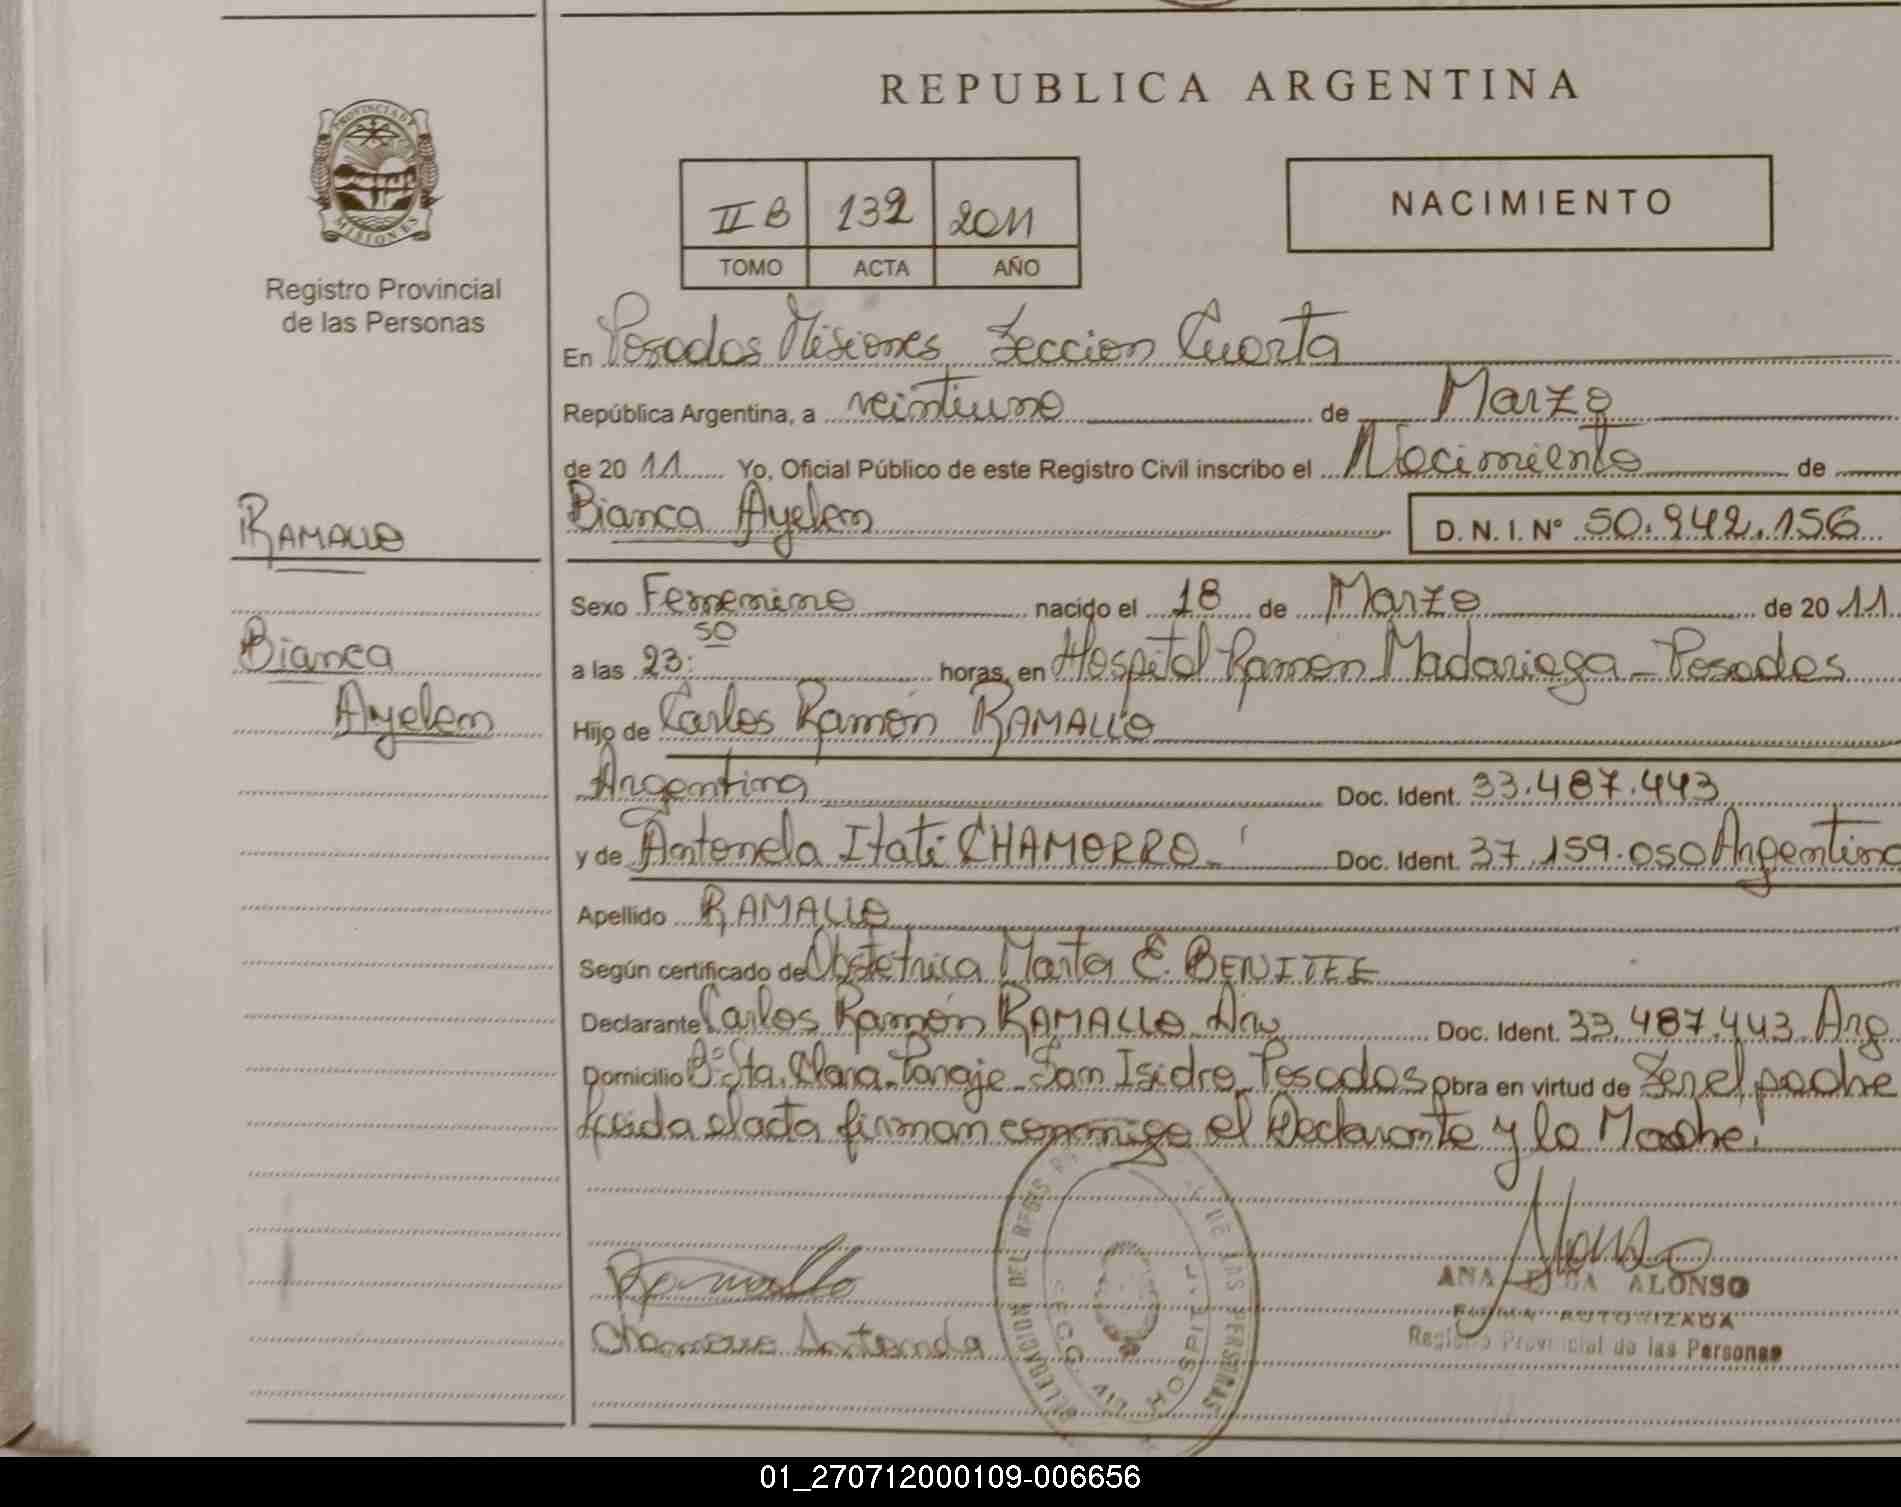 REPUBLICA ARGENTINA
PROVINCIA DE
MISIONES
Registro Provincial
de las Personas
II B 132 2011
TOMO ACTA AÑO
NACIMIENTO
En Posadas Misiones Seccion Cuarta
República Argentina, a veintiuno de Marzo
de 20 11 Yo, Oficial Público de este Registro Civil inscribo el Nacimiento de
Bianca Ayelen D. N. I. Nº 50.942.156
RAMALLO
Bianca
Ayelen
Sexo Femenino nacido el 18 de Marzo de 20 11
a las 23:50 horas, en Hospital Ramon Madariaga - Posadas
Hijo de Carlos Ramón RAMALLO
Argentina Doc. Ident. 33.487.443
y de Antonela Itati CHAMORRO. Doc. Ident. 37.159.050 Argentina
Apellido RAMALLO
Según certificado de Obstetrica Marta E. BENITEZ
Declarante Carlos Ramón RAMALLO Doc. Ident. 33.487.443 Arg
Domicilio Bº Sta. Clara - Paraje San Isidro Posadas obra en virtud de Ser el padre
Leida el acta firman conmigo el Declarante y la Madre.
Ramallo
Chamorro Antonela
DELEGACION DEL REGIS DE LAS PERSONAS
SECC. HOSPITAL
Alonso
ANA ALONSO
FIRMA AUTORIZADA
Registro Provincial de las Personas
01_270712000109-006656